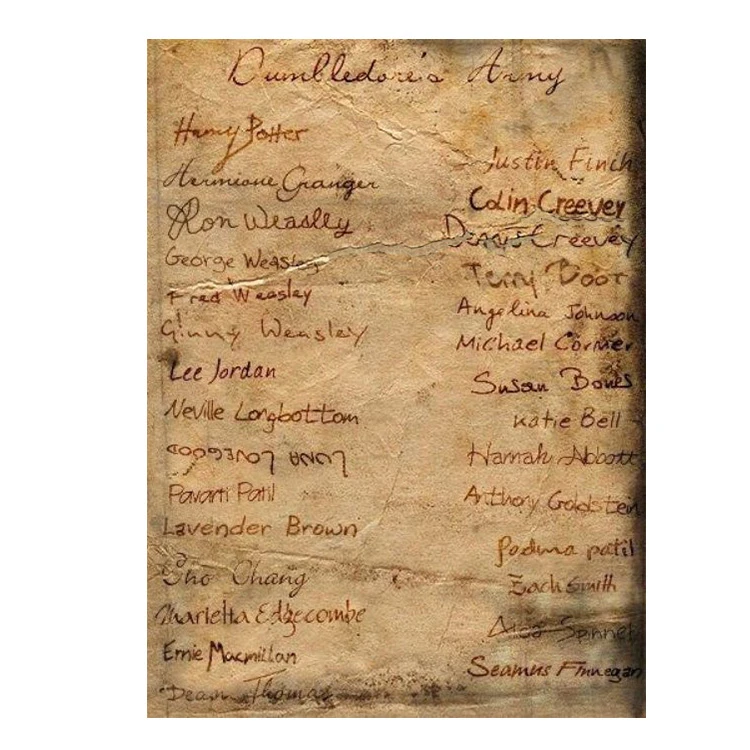 Dumbledore's Army
Harry Potter
Hermione Granger
Ron Weaslley
George Weasley
Fred Weasley
Ginny Weasley
Lee Jordan
Neville Longbottom
LUNA LOVEGOOD
Pavarti Patil
Lavender Brown
Cho Chang
Marietta Edgecombe
Ernie Macmillan
Dean Thomas
Justin Finch
Colin Creevey
Dennis Creevey
Terry Boot
Angelina Johnson
Michael Corner
Susan Bones
Katie Bell
Hannah Abbott
Anthony Goldstein
Padma patil
Zach Smith
Spinnet
Seamus Finnegan